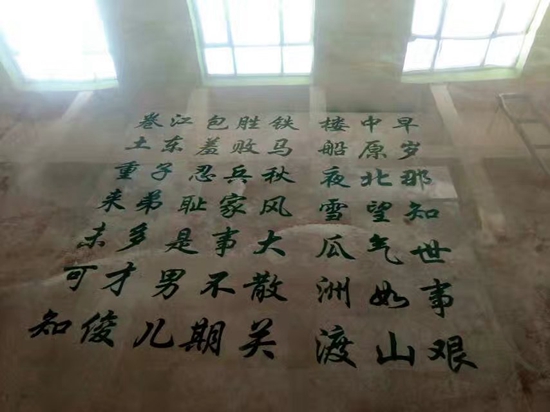 早岁那知世事艰
中原北望气如山
楼船夜雪瓜洲渡
铁马秋风大散关
胜败兵家事不期
包羞忍耻是男儿
江东子弟多才俊
卷土重来未可知